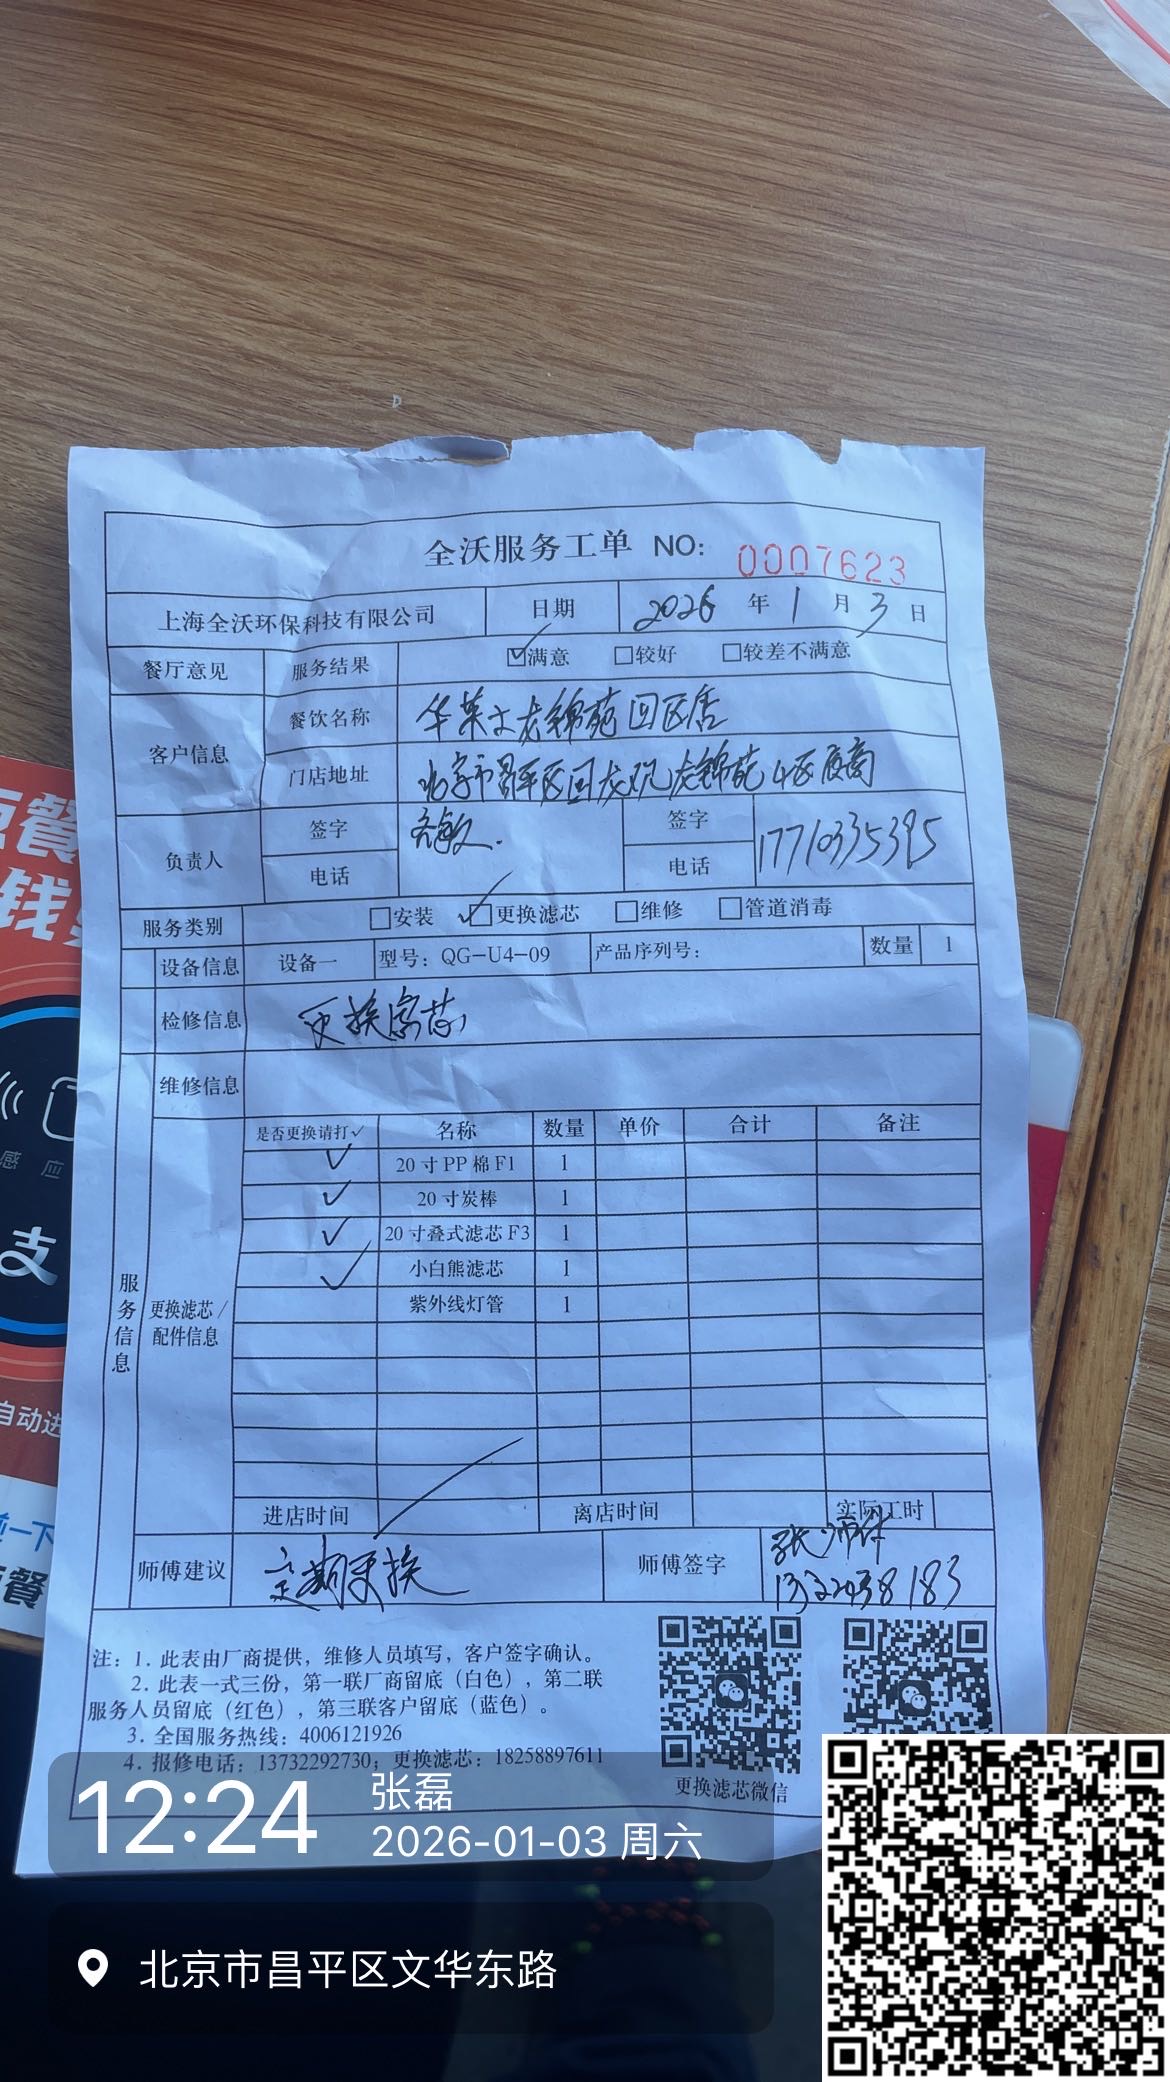 全沃服务工单 NO: 0007623
上海全沃环保科技有限公司 日期 2026 年 1 月 3 日
餐厅意见 服务结果 ☑满意 □较好 □较差不满意
客户信息 餐饮名称 华莱士龙锦苑四区店
门店地址 北京市昌平区回龙观龙锦苑4区底商
负责人 签字 签字
电话 电话 17710335395
服务类别 □安装 ☑更换滤芯 □维修 □管道消毒
设备信息 设备一 型号：QG-U4-09 产品序列号： 数量 1
检修信息 更换滤芯
维修信息
服务信息
更换滤芯/配件信息
是否更换请打✓ 名称 数量 单价 合计 备注
✓ 20寸PP棉F1 1
✓ 20寸炭棒 1
✓ 20寸叠式滤芯F3 1
✓ 小白熊滤芯 1
紫外线灯管 1
进店时间 离店时间 实际工时
师傅建议 定期更换 师傅签字 张师付
注：1. 此表由厂商提供，维修人员填写，客户签字确认。
2. 此表一式三份，第一联厂商留底（白色），第二联
服务人员留底（红色），第三联客户留底（蓝色）。
3. 全国服务热线：4006121926
4. 报修电话：13732292730；更换滤芯：18258897611
更换滤芯微信
12:24 张磊
2026-01-03 周六
北京市昌平区文华东路
感 应
支
自动进